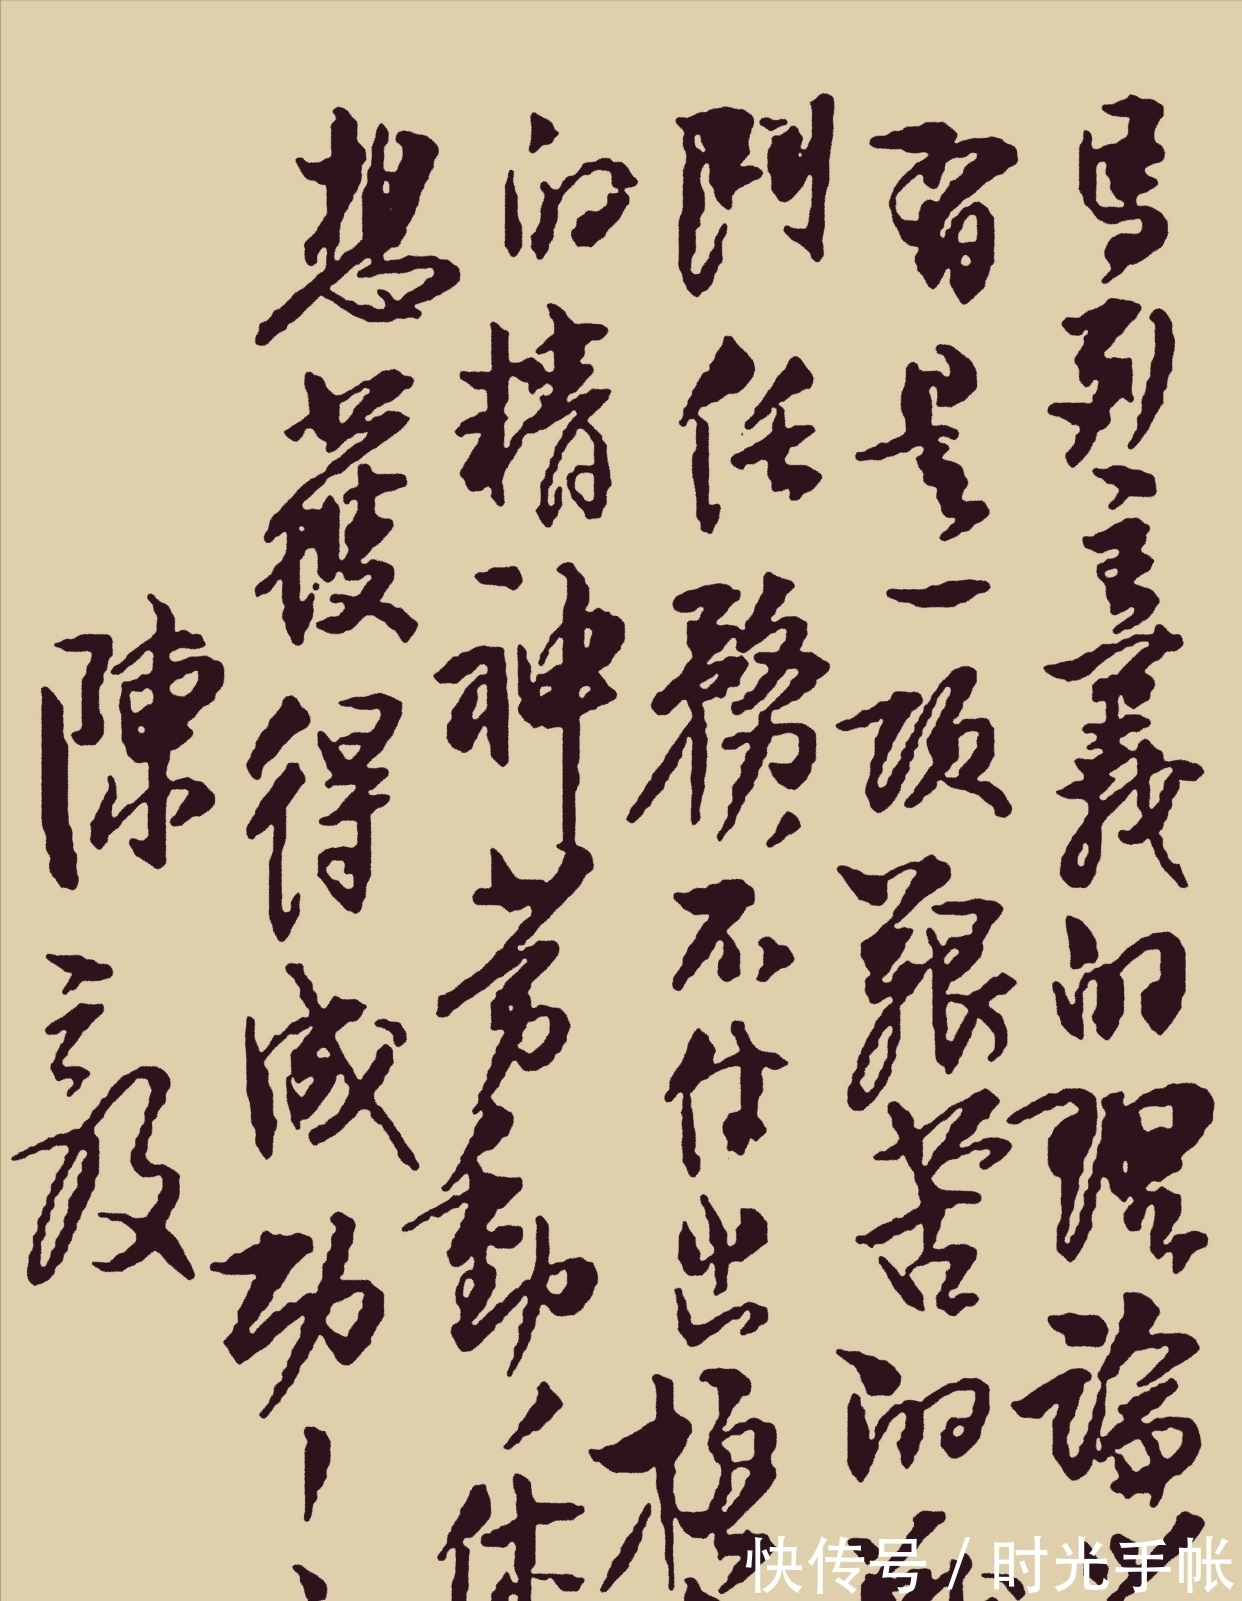 马列主義的理論
習是一项艱苦的
鬥任務，不付出極
的精神劳動，休
想獲得成功！
陳毅
快传号 / 时光手帐